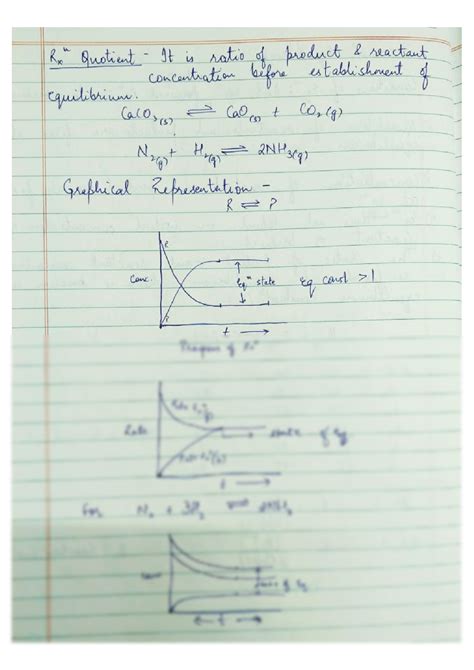 Rxⁿ Quotient - It is ratio of product & reactant
concentration before establishment of
equilibrium.
CaCO₃(s) ⇌ CaO(s) + CO₂(g)
N₂(g) + H₂(g) ⇌ 2NH₃(g)
Graphical Representation -
R ⇌ P
R
Conc.
Eqᵐ state
Eq const > 1
P
t →
Progress of Rxⁿ
Rate
state of Eq
t
For N₂ + 3H₂ ⇌ 2NH₃
Conc
state of Eq
← t →